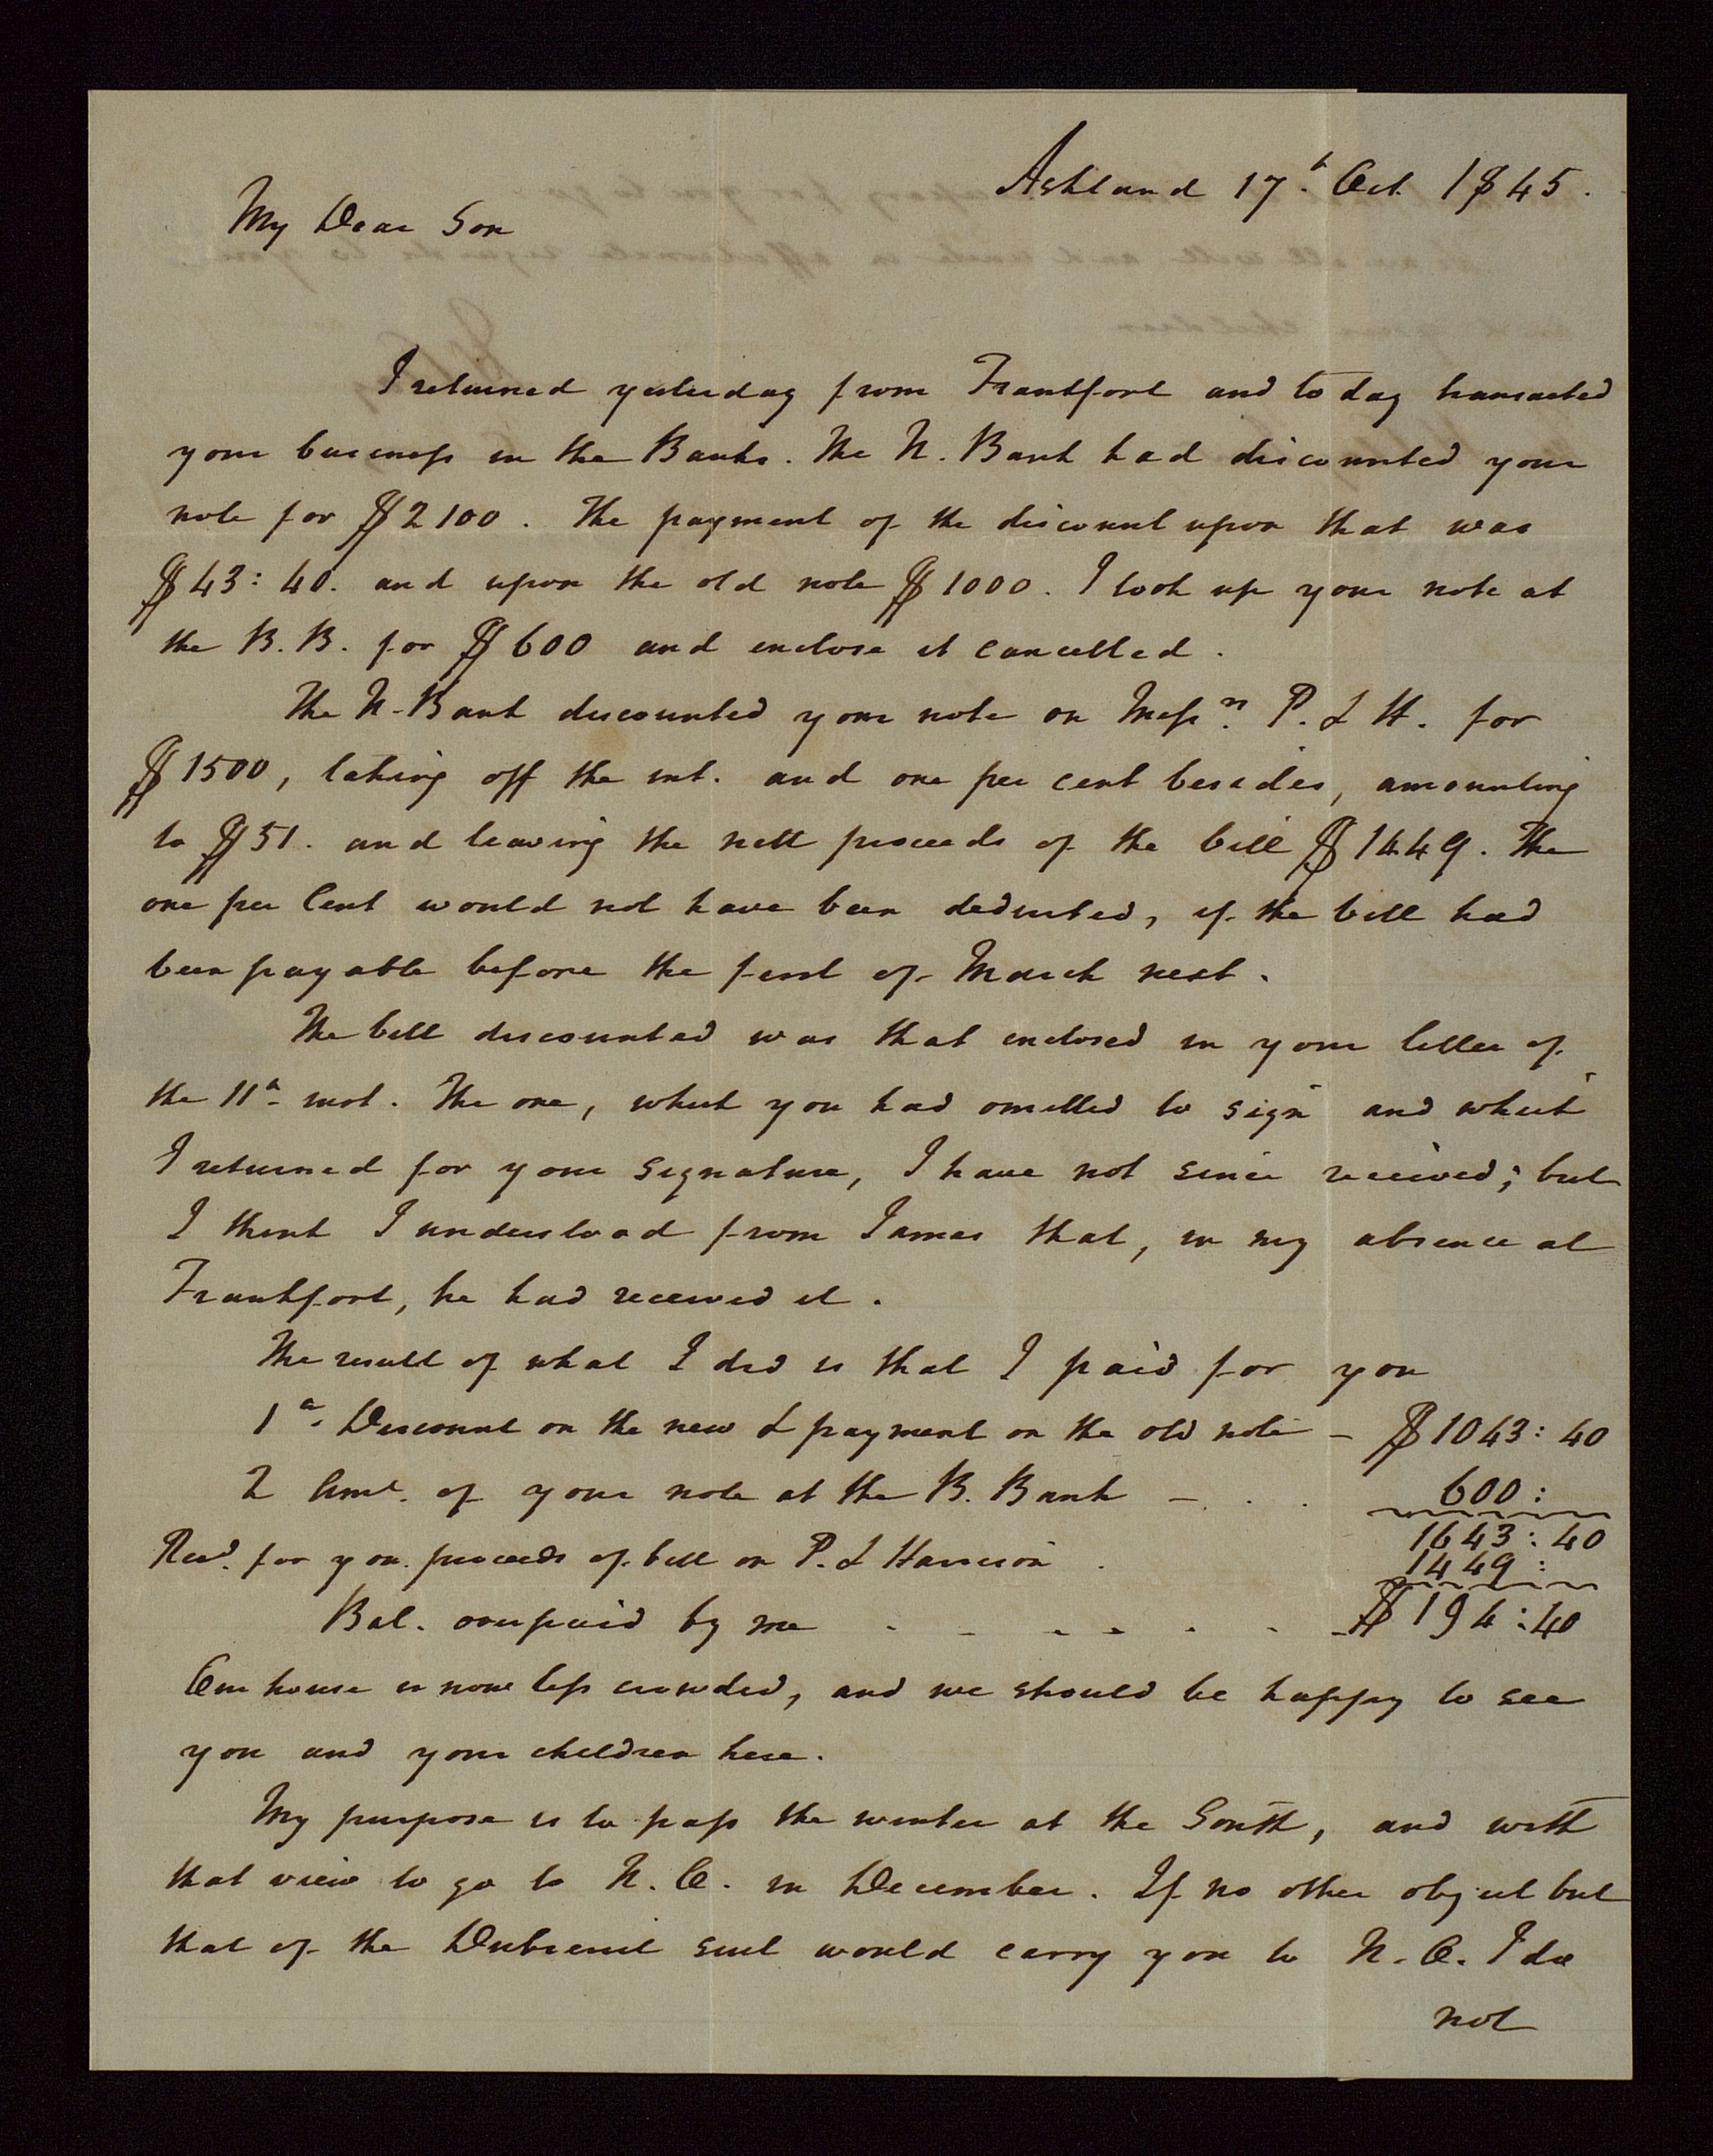 Ashland 17.h Oct. 1845.
My Dear Son
I returned yesterday from Frankfort and to day transacted
your business in the Banks. The N. Bank had discounted your
note for $2100. The payment of the discount upon that was
$43:40. and upon the old note $1000. I took up your note at
the B.B. for $600 and enclose it cancelled.
The N. Bank discounted your note on Messrs. P. & H. for
$1500, taking off the int. and one per cent besides, amounting
to $51. and leaving the nett proceeds of the bill $1449. The
one per Cent would not have been deducted, if the bill had
been payable before the first of March next.
The bill discounted was that enclosed in your letter of
the 11h inst. The one, which you had omitted to sign and which
I returned for your signature, I have not since received; but
I think I understood from James that, in my absence at
Frankfort, he had received it.
The result of what I did is that I paid for you
1st. Discount on the new & payment on the old note - $1043:40
2 Amt. of your note at the B. Bank - . . 600:
1643:40
Recd. for you proceeds of bill on P. & Harrison . 1449:
Bal. overpaid by me - - - - - - - $194:40
Our house is now less crowded, and we should be happy to see
you and your children here.
My purpose is to pass the winter at the South, and with
that view to go to N.O. in December. If no other object but
that of the Dubreuil suit would carry you to N.O. I do
not